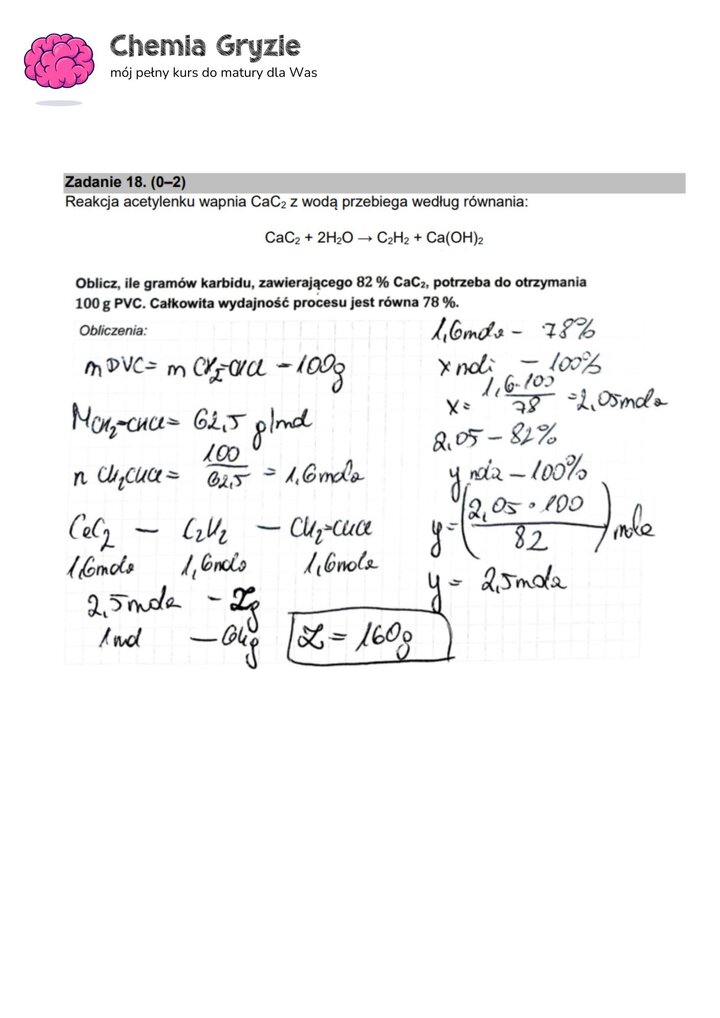 Chemia Gryzie
mój pełny kurs do matury dla Was
Zadanie 18. (0–2)
Reakcja acetylenku wapnia CaC₂ z wodą przebiega według równania:
CaC₂ + 2H₂O → C₂H₂ + Ca(OH)₂
Oblicz, ile gramów karbidu, zawierającego 82 % CaC₂, potrzeba do otrzymania
100 g PVC. Całkowita wydajność procesu jest równa 78 %.
Obliczenia:
mPVC = m CH₂=CHCl – 100g
MCH₂=CHCl = 62,5 g/mol
n CH₂CHCl = 100/62,5 = 1,6 mola
CaC₂ — C₂H₂ — CH₂=CHCl
1,6 mola 1,6 mola 1,6 mola
2,5 mola – Zg
1 mol — 64g
Z = 160g
1,6 mola – 78%
x moli – 100%
x = 1,6·100/78 = 2,05 mola
2,05 – 82%
y mola – 100%
y = (2,05 · 100/82) mola
y = 2,5 mola